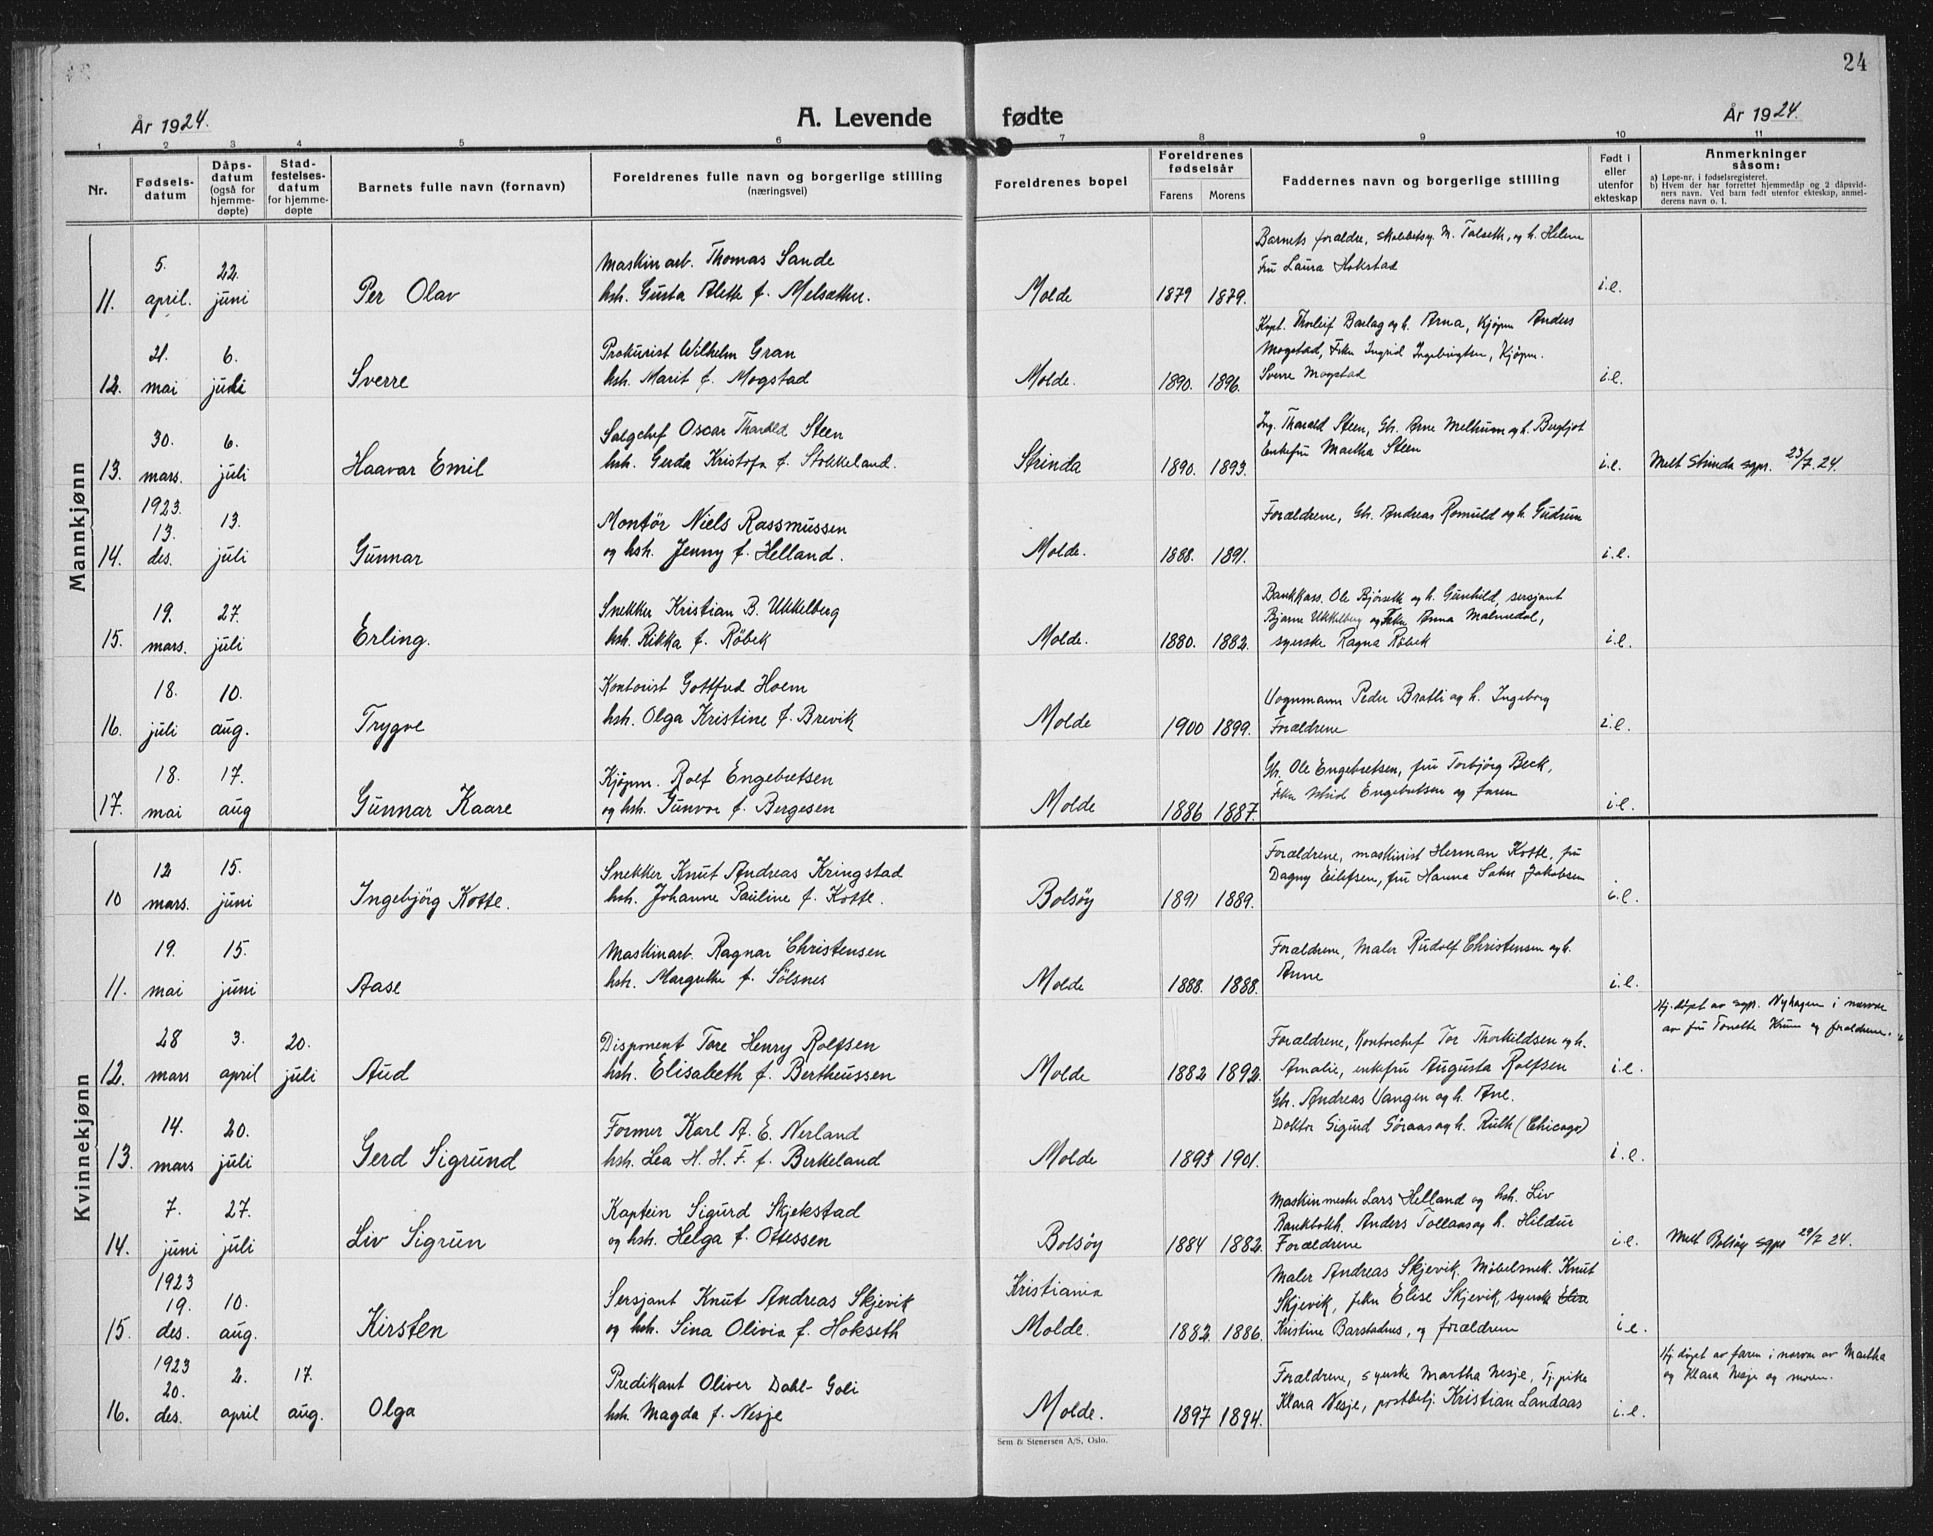 24
År 1924.
A. Levende fødte
År 1924.
1 2 3 4 5 6 7 8 9 10 11
Nr.
Fødsels-
datum
Dåps-
datum
(også for
hjemme-
døpte)
Stad-
festelses-
datum
for hjemme-
døpte
Barnets fulle navn (fornavn)
Foreldrenes fulle navn og borgerlige stilling
(næringsvei)
Foreldrenes bopel
Foreldrenes
fødselsår
Farens Morens
Faddernes navn og borgerlige stilling
Født i
eller
utenfor
ekteskap
Anmerkninger
såsom:
a) Løpe-nr. i fødselsregisteret.
b) Hvem der har forrettet hjemmedåp og 2 dåpsvid-
ners navn. Ved barn født utenfor ekteskap, anmel-
derens navn o. l.
Mannkjønn
11. 5. april. 22. juni Per Olav
Maskinarb. Thomas Sande
hsh. Gusta Alette f. Melsæther.
Molde 1879 1879.
Barnets foraldre, skolebetsy. M. Talseth, og h. Helene
Fru Laura Hokstad
i.e.
12. 21. mai 6. juli Sverre
Prokurist Wilhelm Gran
hsh. Marit f. Mogstad
Molde. 1890. 1896.
Kapt. Thorleif Barlag og h. Arna, Kjøpm Anders
Mogstad, Frkn Ingrid Ingebrigtsen, Kjøpm.
Sverre Mogstad
i.e.
13. 30. mars. 6. juli Haavar Emil
Salgchef Oscar Tharald Steen
hsh. Gerda Kristofa f. Stokkeland.
Strinda 1890. 1893.
Ing. Tharald Steen, Gh. Arne Melhum og h. Bergljot
Enkefru Martha Steen
i.e. Melt Strinda sgpr. 23/7. 24.
14. 1923. 13. des. 13. juli Gunnar
Montør Niels Rassmussen
og hsh. Jenny f. Helland.
Molde. 1888. 1891.
Forældrene, Gh. Andreas Romuld og h. Gudrun
i.e.
15. 19. mars. 27. juli Erling.
Snekker Kristian B. Ukkelberg
hsh. Rikka f. Røbek
Molde. 1880. 1882.
Bankkass. Ole Bjørseth og h. Gunhild, sersjant
Bjarne Ukkelberg og Frkn Anna Malmedal,
syerske Ragna Røbek
i.e.
16. 18. juli 10. aug. Trygve
Kontorist Gottfred Hoem
hsh. Olga Kristine f. Brevik
Molde 1900 1899.
Vognmann Peder Bratli og h. Ingeborg
Forældrene
i.e.
17. 18. mai 17. aug Gunnar Kaare
Kjøpm. Rolf Engebretsen
og hsh. Gunvor f. Bergesen
Molde 1886 1887.
Gh. Ole Engebretsen, fru Torbjørg Beck,
Frkn Engebretsen og faren
i.e.
Kvinnekjønn
10 12 mars. 15. juni Ingebjörg Kotte.
Snekker Knut Andreas Kringstad
hsh. Johanne Pauline f. Kotte.
Bolsøy 1891 1889.
Forældrene, maskinist Herman Kotte, fru
Dagny Eilefsen, fru Hanna Jakobsen
i.e.
11. 19. mai 15. juni Aase
Maskinarb. Ragnar Christensen
hsh. Margrethe f. Sölsnes
Molde 1888. 1888.
Forældrene, Maler Rudolf Christensen og h.
Anne
i.e.
12. 28 mars 3. april 20. juli Aud
Disponent Tore Henry Rolfsen
hsh. Elisabeth f. Bertheussen
Molde 1882 1892.
Forældrene, Kontorchef Tor Thorkildsen og h.
Amalie, enkefru Augusta Rolfsen
i.e.
Hj. døpt av sgpr. Nyhagen i nærvær
av fru Tonette Krum og forældrene.
13. 14. mars 20. juli Gerd Sigrund
Former Karl A. E. Nerland
hsh. Lea H. H. F. f. Berkeland
Molde 1893 1901.
Gh. Andreas Vangen og h. Ane.
Doktor Sigurd Göraas og h. Ruth (Chicago)
i.e.
14. 7. juni 27. juli Liv Sigrun
Kaptein Sigurd Skjekstad
og hsh. Helga f. Ottessen
Bolsøy 1884 1882.
Maskinmester Lars Helland og hsh. Liv
Bankbokh. Anders Tollaas og h. Hildur
Forældrene
i.e. Melt Bolsøy sgpr 29/7 24.
15. 1923 19. des. 10. aug. Kirsten
Sersjant Knut Andreas Skjevik
og hsh. Sina Olivia f. Hokseth
Kristiania
Molde. 1882. 1886.
Maler Andreas Skjevik. Møbelsnek. Knut
Skjevik, frkn Elise Skjevik, syersk Elise
Kristine Barstadnes, og forældrene
i.e.
16. 1923 20. des. 2. april 17. aug. Olga
Predikant Oliver Dahl-Goli
hsh. Magda f. Nesje
Molde. 1897 1894.
Forældrene, syerske Martha Nesje, Tj. pike
Klara Nesje, postbetj. Kristian Landaas
i.e.
Hj. døpt av faren i nærvær av Martha
og Klara Nesje og moren.
Sem & Stenersen A/S, Oslo.